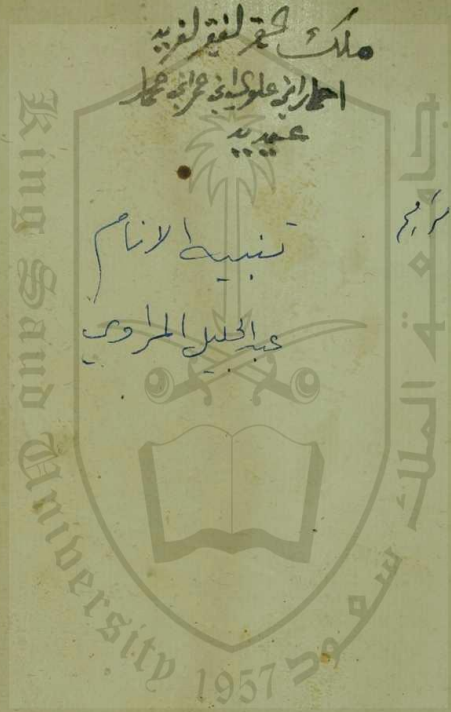 ملك الحقر الفقير لفربه
احمد ابن علوي ابن عمر ابن حماد
عيديد
مراجع
تنبيه الانام
عبد الجليل المراوي
King Saud University
جامعة الملك سعود
1957